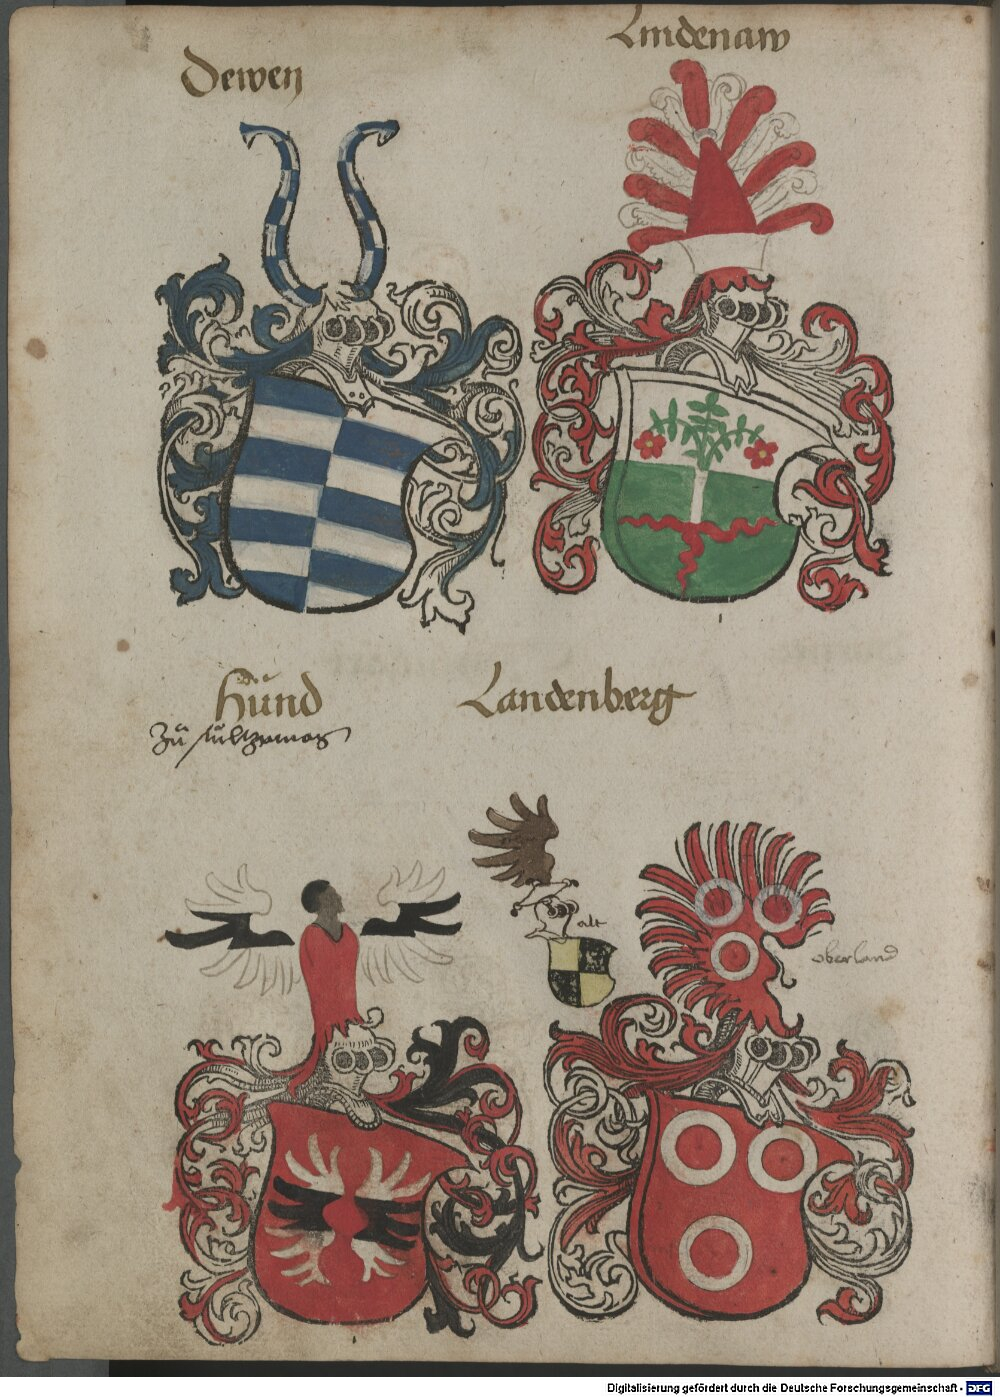 Dewen
Lindenaw
Hund
Zů sultzemos
Landenberg
alt
oberland
Digitalisierung gefördert durch die Deutsche Forschungsgemeinschaft - DFG